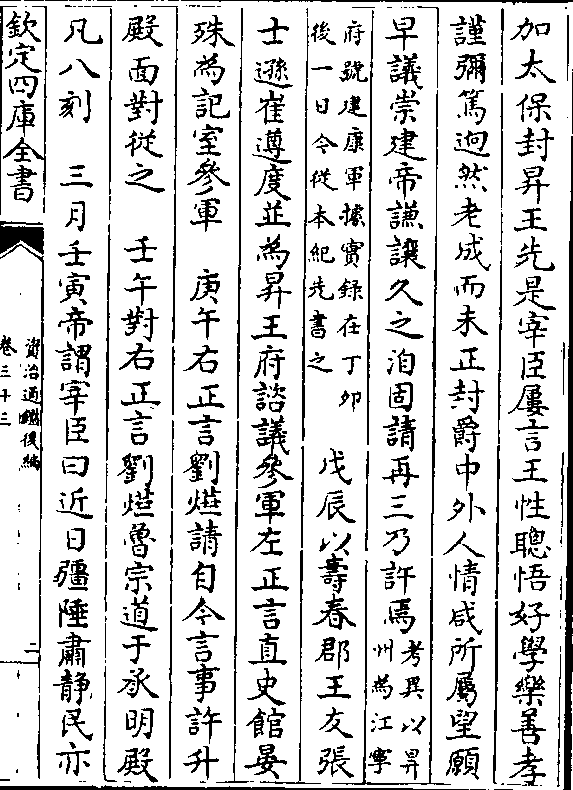 加太保封昇王先是宰臣屢言王性聰悟好學樂善孝
謹彌篤迥然老成而未正封爵中外人情咸所屬望願
早議崇建帝謙讓久之洎固請再三乃許焉考異以昇
州為江寧
府號建康軍據實錄在丁卯
後一日今從本紀先書之　戊辰以壽春郡王友張
士遜崔遵度並為昇王府諮議參軍左正言直史館晏
殊為記室參軍　庚午右正言劉㷆請自今言事許升
殿面對從之　壬午對右正言劉㷆魯宗道于承明殿
凡八刻　三月壬寅帝謂宰臣曰近日疆陲肅靜民亦
欽定四庫全書
資治通鑑後編
卷三十三
二